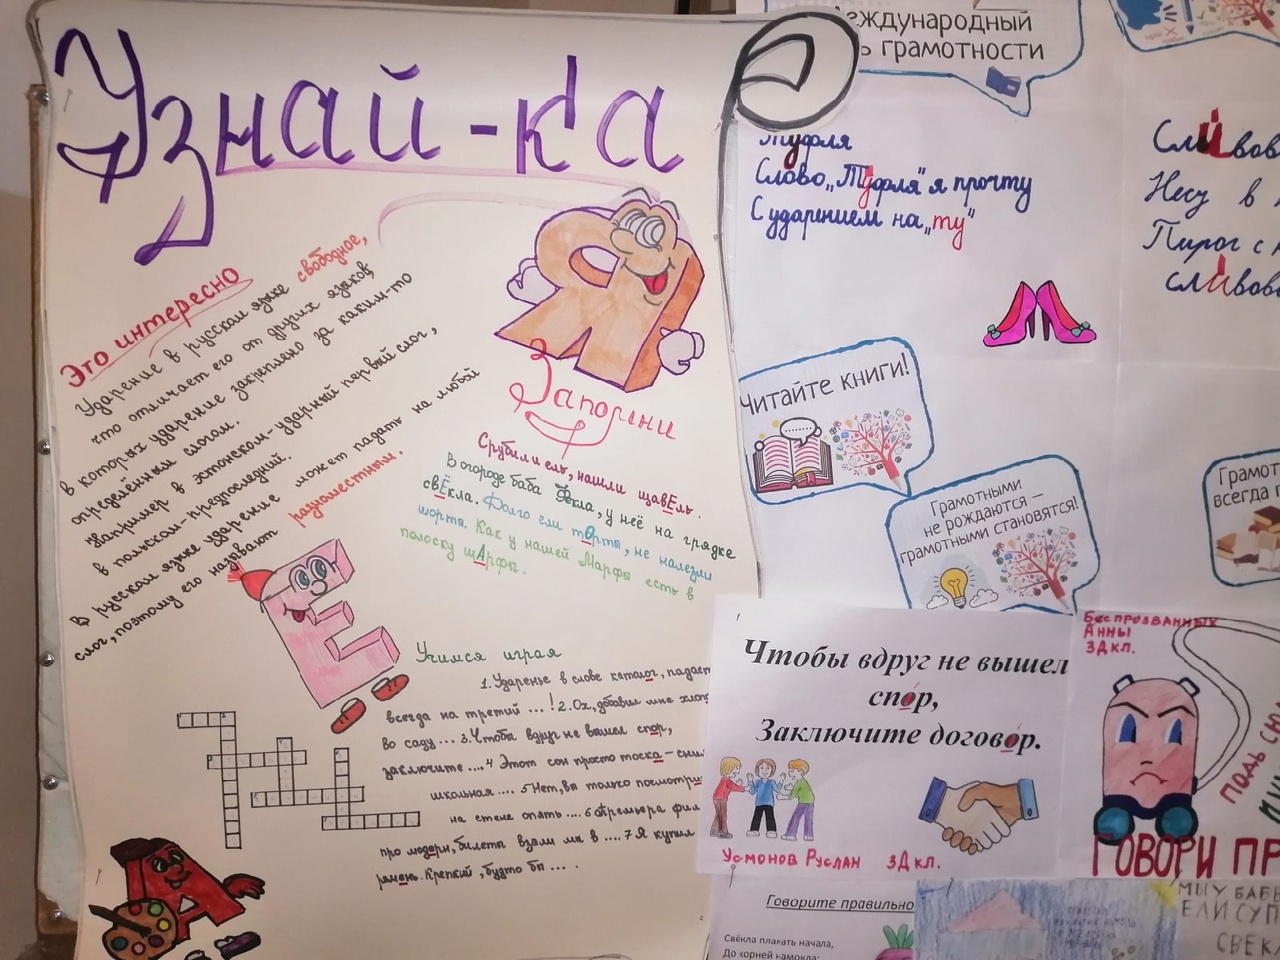 Узнай-ка
Это интересно
Ударение в русском языке свободное,
что отличает его от других языков,
в которых ударение закреплено за каким-то
определённым слогом.
Например в эстонском - ударный первый слог,
в польском - предпоследний.
В русском языке ударение может падать на любой
слог, поэтому его называют разноместным.
Запомни
Срубили ель, нашли щавЕль.
В огороде баба Фёкла, у неё на грядке
свЁкла. Долго ели тОрты, не налезли
шорты. Как у нашей Марфы есть в
полоску шАрфы.
Учимся играя
1. Ударенье в слове каталог, падает
всегда на третий ...! 2. Ох, добавил мне
во саду ... 3. Чтобы вдруг не вышел спор,
заключите .... 4 Этот сон просто тоска -
школьная .... 5 Нет, вы только
на стене опять .... 6 Премьера
про модерн, билеты взяли мы в .... 7 Я купил
ремень. Крепкий, будто бы ... .
ждународный
грамотности
Туфля
Слово „Туфля" я прочту
С ударением на „ту"
Несу в
Пирог с
Читайте книги!
Грамотными
не рождаются –
грамотными становятся!
всегда
Чтобы вдруг не вышел
спор,
Заключите договор.
Усмонов Руслан 3Д кл.
Беспрозванных
Анны
3Д кл.
ГОВОРИ ПР
Говорите правильно
Свёкла плакать начала,
До корней намокла:
МЫ У БАБ
ЕЛИ СУП
СВЕК